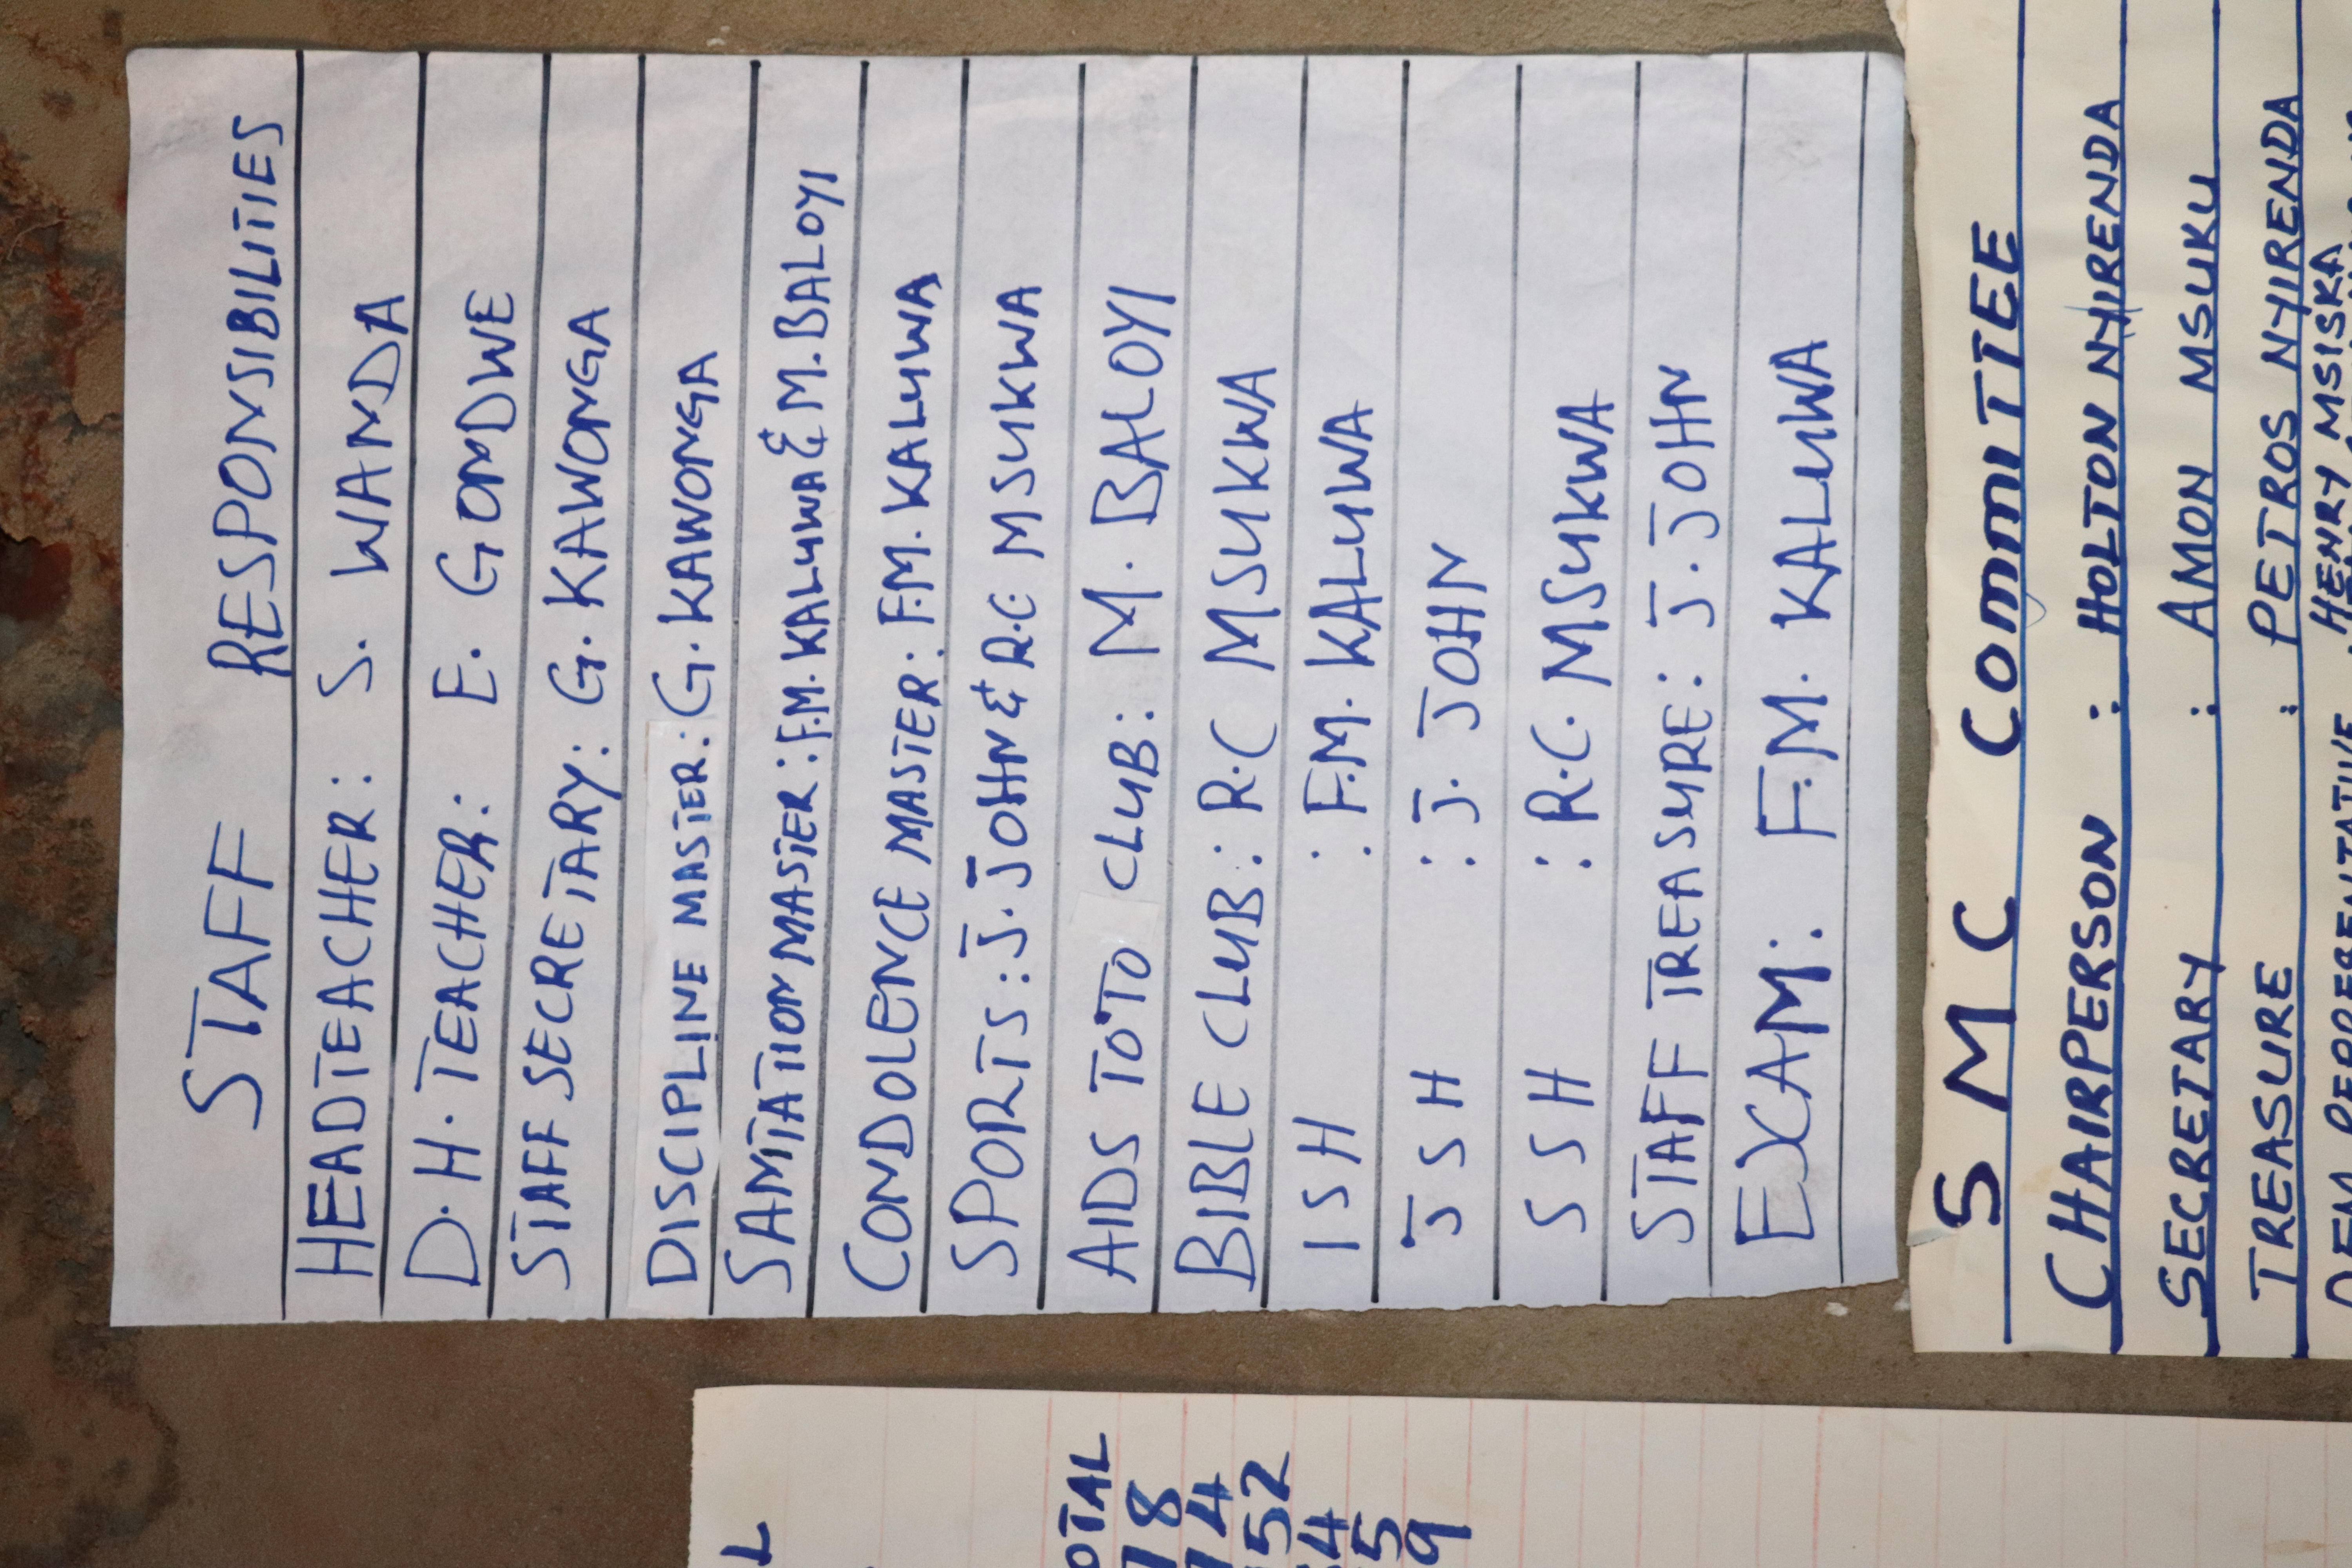 STAFF RESPONSIBILITIES
HEADTEACHER: S. WANDA
D.H. TEACHER: E. GONDWE
STAFF SECRETARY: G. KAWONGA
DISCIPLINE MASTER: G. KAWONGA
SANITATION MASTER: F.M. KALUWA & M. BALOYI
CONDOLENCE MASTER: F.M. KALUWA
SPORTS: J. JOHN & R.C MSUKWA
AIDS TOTO CLUB: M. BALOYI
BIBLE CLUB: R.C MSUKWA
ISH : F.M. KALUWA
JSH : J. JOHN
SSH : R.C. MSUKWA
STAFF TREASURE: J. JOHN
EXAM: F.M. KALUWA
SMC COMMITTEE
CHAIRPERSON : HOLTON NYIRENDA
SECRETARY : AMON MSUKU
TREASURE : PETROS NYIRENDA
HENRY MSISKA
OTAL
52